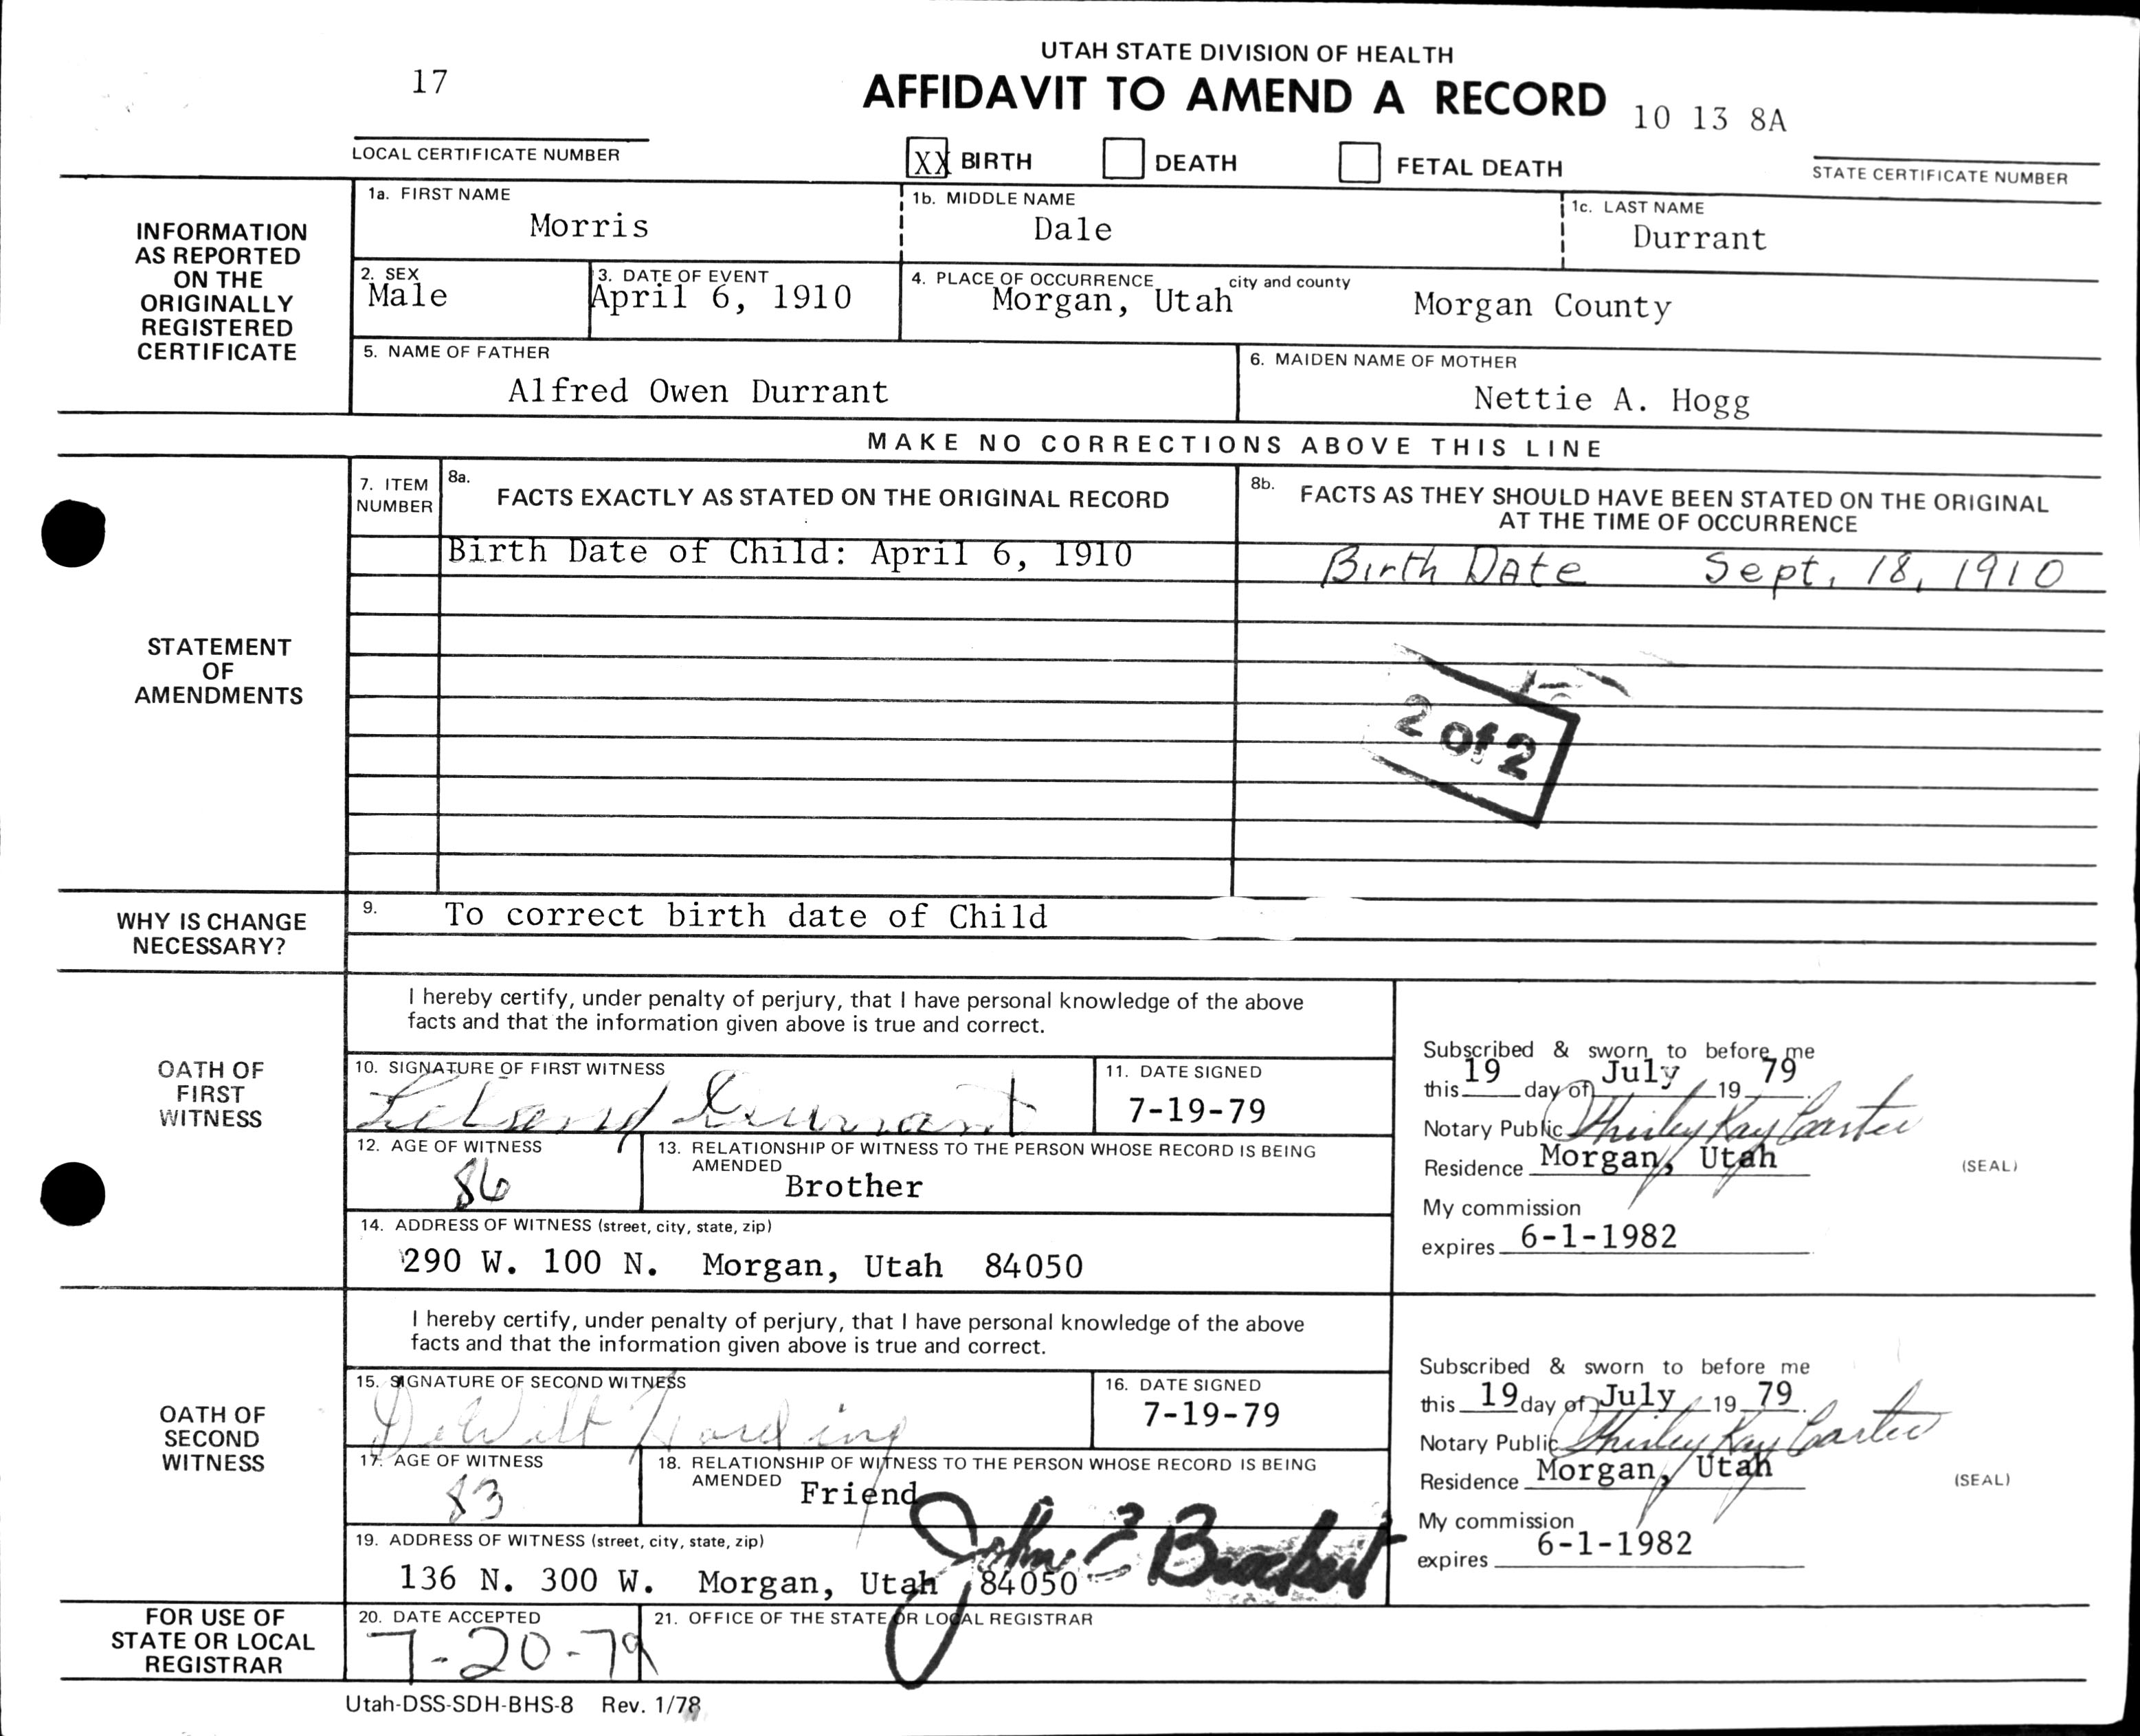 UTAH STATE DIVISION OF HEALTH
17
AFFIDAVIT TO AMEND A RECORD
10 13 8A
LOCAL CERTIFICATE NUMBER
XX BIRTH DEATH FETAL DEATH
STATE CERTIFICATE NUMBER
INFORMATION AS REPORTED ON THE ORIGINALLY REGISTERED CERTIFICATE
1a. FIRST NAME 1b. MIDDLE NAME 1c. LAST NAME
Morris Dale Durrant
2. SEX 3. DATE OF EVENT 4. PLACE OF OCCURRENCE city and county
Male April 6, 1910 Morgan, Utah Morgan County
5. NAME OF FATHER 6. MAIDEN NAME OF MOTHER
Alfred Owen Durrant Nettie A. Hogg
MAKE NO CORRECTIONS ABOVE THIS LINE
STATEMENT OF AMENDMENTS
7. ITEM NUMBER
8a. FACTS EXACTLY AS STATED ON THE ORIGINAL RECORD
8b. FACTS AS THEY SHOULD HAVE BEEN STATED ON THE ORIGINAL
AT THE TIME OF OCCURRENCE
Birth Date of Child: April 6, 1910
Birth Date Sept. 18, 1910
2 of 2
WHY IS CHANGE NECESSARY?
9. To correct birth date of Child
OATH OF FIRST WITNESS
I hereby certify, under penalty of perjury, that I have personal knowledge of the above
facts and that the information given above is true and correct.
10. SIGNATURE OF FIRST WITNESS 11. DATE SIGNED
Durrant 7-19-79
12. AGE OF WITNESS 13. RELATIONSHIP OF WITNESS TO THE PERSON WHOSE RECORD IS BEING
AMENDED
86 Brother
14. ADDRESS OF WITNESS (street, city, state, zip)
290 W. 100 N. Morgan, Utah 84050
Subscribed & sworn to before me
this 19 day of July 19 79
Notary Public Shirley Kay Carter
Residence Morgan, Utah (SEAL)
My commission
expires 6-1-1982
OATH OF SECOND WITNESS
I hereby certify, under penalty of perjury, that I have personal knowledge of the above
facts and that the information given above is true and correct.
15. SIGNATURE OF SECOND WITNESS 16. DATE SIGNED
DeWitt Harding 7-19-79
17. AGE OF WITNESS 18. RELATIONSHIP OF WITNESS TO THE PERSON WHOSE RECORD IS BEING
AMENDED
83 Friend
19. ADDRESS OF WITNESS (street, city, state, zip)
136 N. 300 W. Morgan, Utah 84050
John E
Subscribed & sworn to before me
this 19 day of July 19 79
Notary Public Shirley Kay Carter
Residence Morgan, Utah (SEAL)
My commission
expires 6-1-1982
FOR USE OF STATE OR LOCAL REGISTRAR
20. DATE ACCEPTED 21. OFFICE OF THE STATE OR LOCAL REGISTRAR
7-20-79
Utah-DSS-SDH-BHS-8 Rev. 1/78